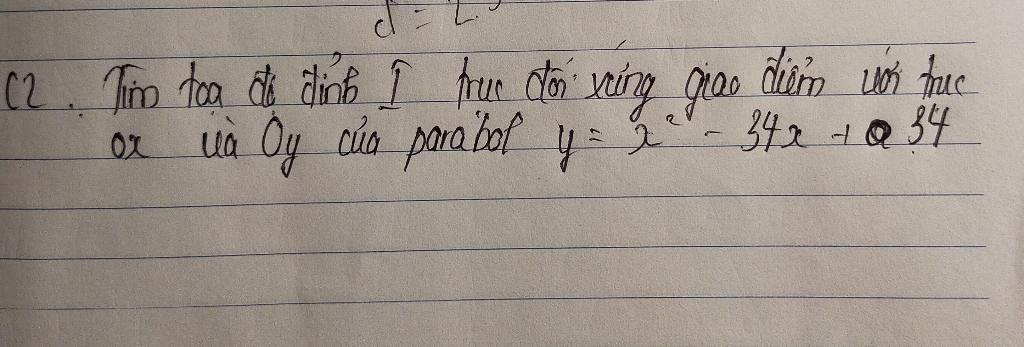 C2. Tìm tọa độ đỉnh I trục đối xứng giao điểm với trục
ox và Oy của parabol y = x² - 34x + 34